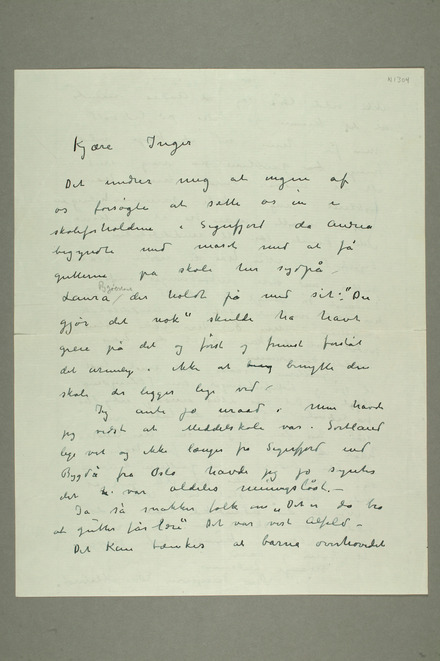 N1304
Kjære Inger
Det undrer meg at ingen af
os forsøgte at sætte os in i
skoleforholdene i Sigerfjord da Andrea
begyndte med masek med at få
guttene på skole her sydpå –
Bojesen
Laura, der holdt på med sit: "Du
gjør det nok" skulde ha havt
greie på det og først og fremst forstått
det urimelige i ikke at benytte den
skole der ligger lige ved –
Jeg ante jo uraad i men havde
jeg vidst at Meddelskole var i Sortland
lige vet og ikke længer fra Sigerfjord end
Bygdø fra Oslo havde jeg jo syntes
det var aldeles meningsløst. –
Ja så snakker folk om "Det er da bra
at gutter får lære" Det var vist Alfeld –
Det kan tænkes at barna overhovedet